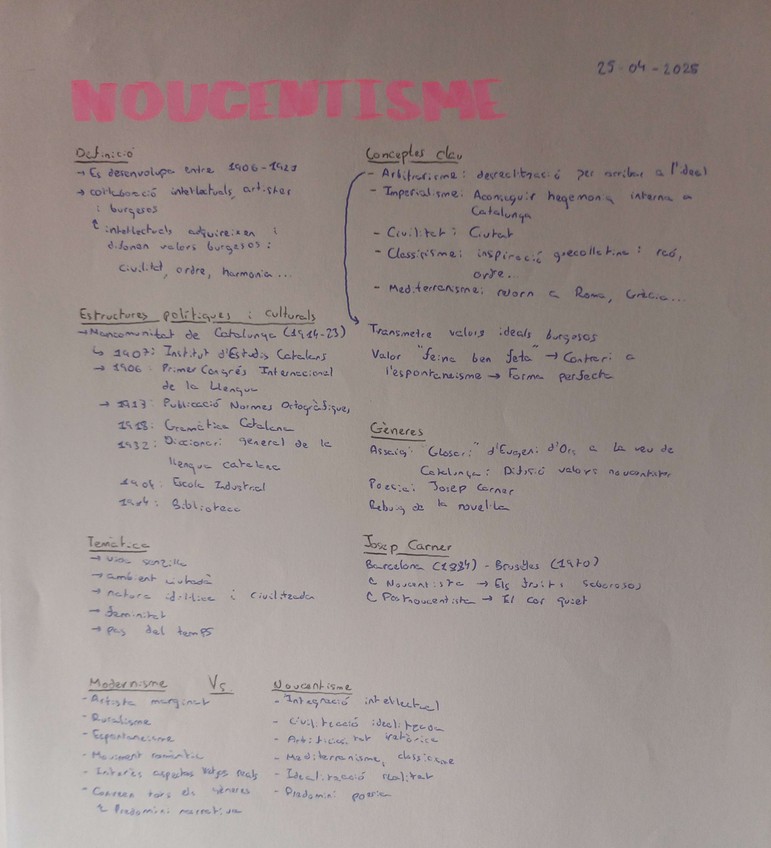 25-04-2025
NOUCENTISME
Definició
→ Es desenvolupa entre 1906-1923
→ col·laboració intel·lectuals, artistes
i burgesos
intel·lectuals adquireixen i
difonen valors burgesos:
civilitat, ordre, harmonia...
Estructures polítiques i culturals
→ Mancomunitat de Catalunya (1914-23)
↳ 1907: Institut d'Estudis Catalans
→ 1906: Primer Congrés Internacional
de la Llengua
→ 1913: Publicació Normes Ortogràfiques
1918: Gramàtica Catalana
1932: Diccionari general de la
llengua catalana
1904: Escola Industrial
1904: Biblioteca
Temàtica
→ vida senzilla
→ ambient ciutadà
→ natura idíl·lica i civilitzada
→ feminitat
→ pas del temps
Conceptes clau
- Arbitrarisme: desrealització per arribar a l'ideal
- Imperialisme: Aconseguir hegemonia interna a
Catalunya
- Civilitat i Ciutat
- Classicisme: inspiració grecollatina: raó,
ordre...
- Mediterranisme: retorn a Roma, Grècia...
Transmetre valors ideals burgesos
Valor "feina ben feta" → Contrari a
l'espontaneisme → Forma perfecta
Gèneres
Assaig: "Glosari" d'Eugeni d'Ors a la veu de
Catalunya: Difusió valors noucentistes
Poesia: Josep Carner
Rebuig de la novel·la
Josep Carner
Barcelona (1884) - Brusel·les (1970)
Noucentista → Els fruits saborosos
Postnoucentista → El cor quiet
Modernisme Vs. Noucentisme
- Artista marginat
- Ruralisme
- Espontaneisme
- Moviment romàntic
- Interès aspectes reals
- Conreen tots els gèneres
Predomini narrativa
- Integració intel·lectual
- Civilització idealitzada
- Artificiositat retòrica
- Mediterranisme, classicisme
- Idealització realitat
- Predomini poesia